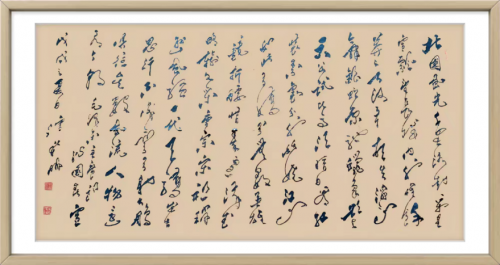 北国风光千里冰封万里
雪飘望长城内外惟余
莽莽大河上下顿失滔滔山
舞银蛇原驰蜡象欲与
天公试比高须晴日看红
装素裹分外妖娆江山
如此多娇引无数英雄
竞折腰惜秦皇汉武
略输文采唐宗宋祖稍
逊风骚一代天骄成吉
思汗只识弯弓射大雕
俱往矣数风流人物还
看今朝毛泽东主席词沁园春雪
戊戌之春日